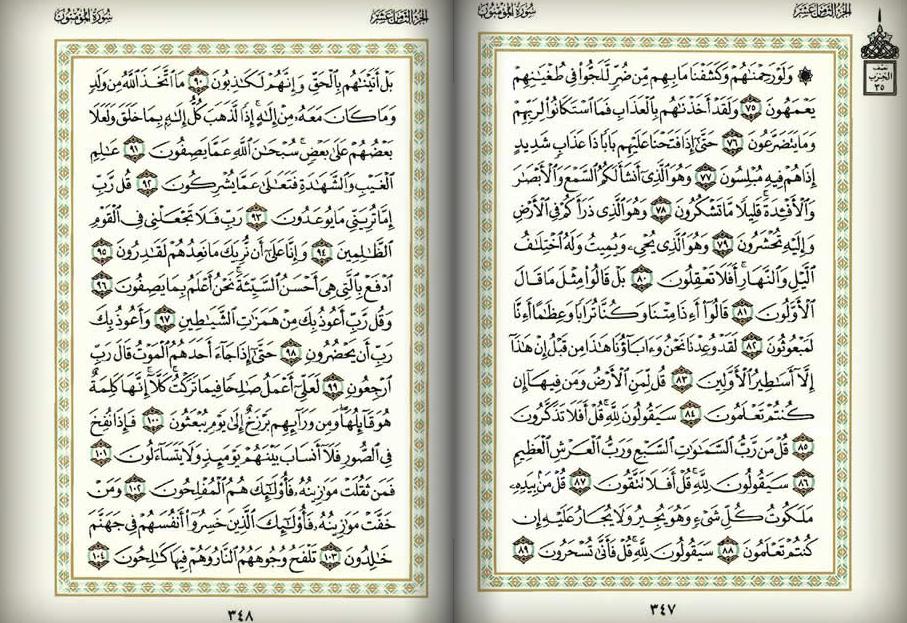 الجزء الثامن عشر
سورة المؤمنون
نصف
الحزب
٣٥
۞ وَلَوْ رَحِمْنَٰهُمْ وَكَشَفْنَا مَا بِهِم مِّن ضُرٍّ لَّلَجُّوا۟ فِى طُغْيَٰنِهِمْ
يَعْمَهُونَ ٧٥ وَلَقَدْ أَخَذْنَٰهُم بِٱلْعَذَابِ فَمَا ٱسْتَكَانُوا۟ لِرَبِّهِمْ
وَمَا يَتَضَرَّعُونَ ٧٦ حَتَّىٰٓ إِذَا فَتَحْنَا عَلَيْهِم بَابًا ذَا عَذَابٍ شَدِيدٍ
إِذَا هُمْ فِيهِ مُبْلِسُونَ ٧٧ وَهُوَ ٱلَّذِىٓ أَنشَأَ لَكُمُ ٱلسَّمْعَ وَٱلْأَبْصَٰرَ
وَٱلْأَفْـِٔدَةَ ۚ قَلِيلًا مَّا تَشْكُرُونَ ٧٨ وَهُوَ ٱلَّذِى ذَرَأَكُمْ فِى ٱلْأَرْضِ
وَإِلَيْهِ تُحْشَرُونَ ٧٩ وَهُوَ ٱلَّذِى يُحْىِۦ وَيُمِيتُ وَلَهُ ٱخْتِلَٰفُ
ٱلَّيْلِ وَٱلنَّهَارِ ۚ أَفَلَا تَعْقِلُونَ ٨٠ بَلْ قَالُوا۟ مِثْلَ مَا قَالَ
ٱلْأَوَّلُونَ ٨١ قَالُوٓا۟ أَءِذَا مِتْنَا وَكُنَّا تُرَابًا وَعِظَٰمًا أَءِنَّا
لَمَبْعُوثُونَ ٨٢ لَقَدْ وُعِدْنَا نَحْنُ وَءَابَآؤُنَا هَٰذَا مِن قَبْلُ إِنْ هَٰذَآ
إِلَّآ أَسَٰطِيرُ ٱلْأَوَّلِينَ ٨٣ قُل لِّمَنِ ٱلْأَرْضُ وَمَن فِيهَآ إِن
كُنتُمْ تَعْلَمُونَ ٨٤ سَيَقُولُونَ لِلَّهِ ۚ قُلْ أَفَلَا تَذَكَّرُونَ
٨٥ قُلْ مَن رَّبُّ ٱلسَّمَٰوَٰتِ ٱلسَّبْعِ وَرَبُّ ٱلْعَرْشِ ٱلْعَظِيمِ
٨٦ سَيَقُولُونَ لِلَّهِ ۚ قُلْ أَفَلَا تَتَّقُونَ ٨٧ قُلْ مَنۢ بِيَدِهِۦ
مَلَكُوتُ كُلِّ شَىْءٍ وَهُوَ يُجِيرُ وَلَا يُجَارُ عَلَيْهِ إِن
كُنتُمْ تَعْلَمُونَ ٨٨ سَيَقُولُونَ لِلَّهِ ۚ قُلْ فَأَنَّىٰ تُسْحَرُونَ ٨٩
٣٤٧
الجزء الثامن عشر
سورة المؤمنون
بَلْ أَتَيْنَٰهُم بِٱلْحَقِّ وَإِنَّهُمْ لَكَٰذِبُونَ ٩٠ مَا ٱتَّخَذَ ٱللَّهُ مِن وَلَدٍ
وَمَا كَانَ مَعَهُۥ مِنْ إِلَٰهٍ ۚ إِذًا لَّذَهَبَ كُلُّ إِلَٰهٍۭ بِمَا خَلَقَ وَلَعَلَا
بَعْضُهُمْ عَلَىٰ بَعْضٍ ۚ سُبْحَٰنَ ٱللَّهِ عَمَّا يَصِفُونَ ٩١ عَٰلِمِ
ٱلْغَيْبِ وَٱلشَّهَٰدَةِ فَتَعَٰلَىٰ عَمَّا يُشْرِكُونَ ٩٢ قُل رَّبِّ
إِمَّا تُرِيَنِّى مَا يُوعَدُونَ ٩٣ رَبِّ فَلَا تَجْعَلْنِى فِى ٱلْقَوْمِ
ٱلظَّٰلِمِينَ ٩٤ وَإِنَّا عَلَىٰٓ أَن نُّرِيَكَ مَا نَعِدُهُمْ لَقَٰدِرُونَ ٩٥
ٱدْفَعْ بِٱلَّتِى هِىَ أَحْسَنُ ٱلسَّيِّئَةَ ۚ نَحْنُ أَعْلَمُ بِمَا يَصِفُونَ ٩٦
وَقُل رَّبِّ أَعُوذُ بِكَ مِنْ هَمَزَٰتِ ٱلشَّيَٰطِينِ ٩٧ وَأَعُوذُ بِكَ
رَبِّ أَن يَحْضُرُونِ ٩٨ حَتَّىٰٓ إِذَا جَآءَ أَحَدَهُمُ ٱلْمَوْتُ قَالَ رَبِّ
ٱرْجِعُونِ ٩٩ لَعَلِّىٓ أَعْمَلُ صَٰلِحًا فِيمَا تَرَكْتُ ۚ كَلَّآ ۚ إِنَّهَا كَلِمَةٌ
هُوَ قَآئِلُهَا ۖ وَمِن وَرَآئِهِم بَرْزَخٌ إِلَىٰ يَوْمِ يُبْعَثُونَ ١٠٠ فَإِذَا نُفِخَ
فِى ٱلصُّورِ فَلَآ أَنسَابَ بَيْنَهُمْ يَوْمَئِذٍ وَلَا يَتَسَآءَلُونَ ١٠١
فَمَن ثَقُلَتْ مَوَٰزِينُهُۥ فَأُو۟لَٰٓئِكَ هُمُ ٱلْمُفْلِحُونَ ١٠٢ وَمَنْ
خَفَّتْ مَوَٰزِينُهُۥ فَأُو۟لَٰٓئِكَ ٱلَّذِينَ خَسِرُوٓا۟ أَنفُسَهُمْ فِى جَهَنَّمَ
خَٰلِدُونَ ١٠٣ تَلْفَحُ وُجُوهَهُمُ ٱلنَّارُ وَهُمْ فِيهَا كَٰلِحُونَ ١٠٤
٣٤٨